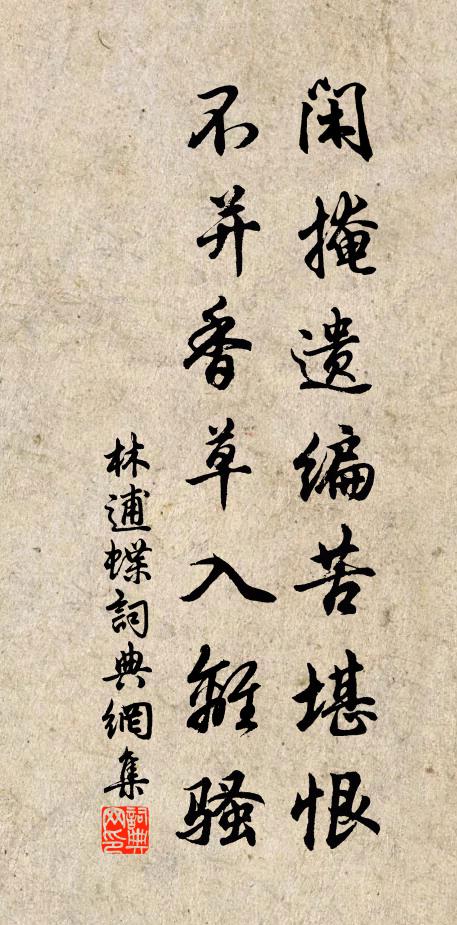 闲掩遗编苦堪恨
不并香草入離骚
林逋蝶詞典網集
詞典网印